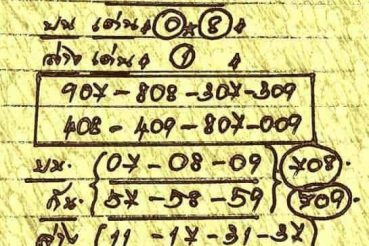 บน เด่น 0 * 8
ล่าง เด่น 1
907 - 808 - 307 - 309
408 - 409 - 807 - 009
บน. (07 - 08 - 09) 708.
กัน. {57 - 58 - 59} 709.
ล่าง (11 - 17 - 31 - 37)